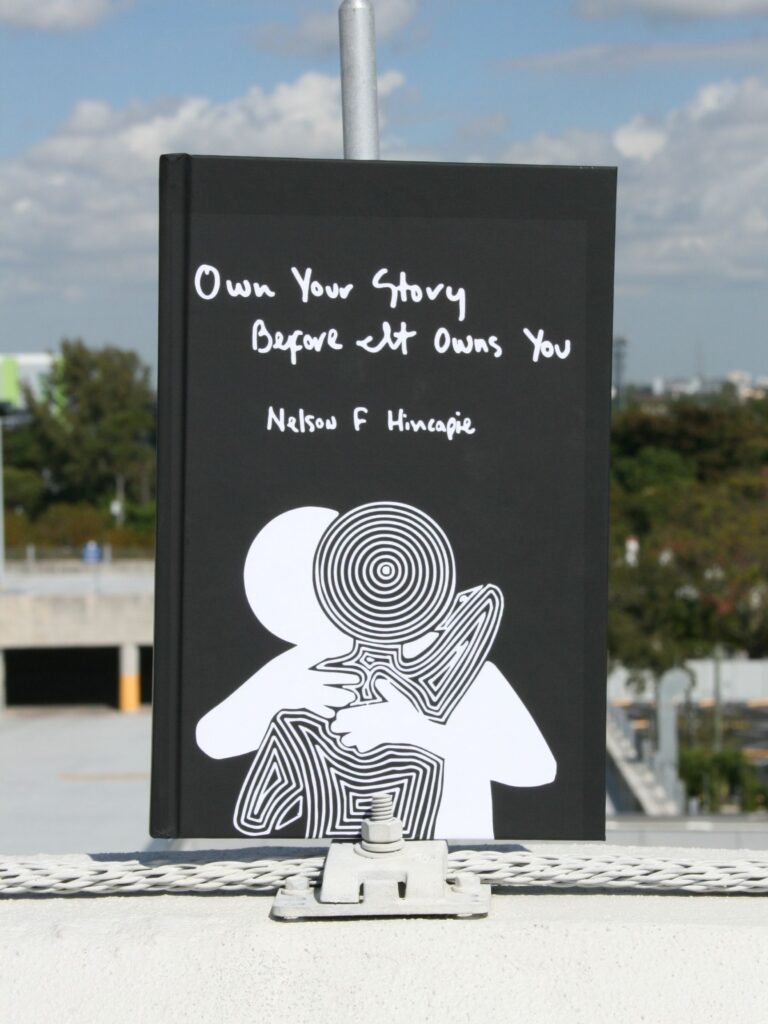 Own Your Story
Before It Owns You
Nelson F Hincapie